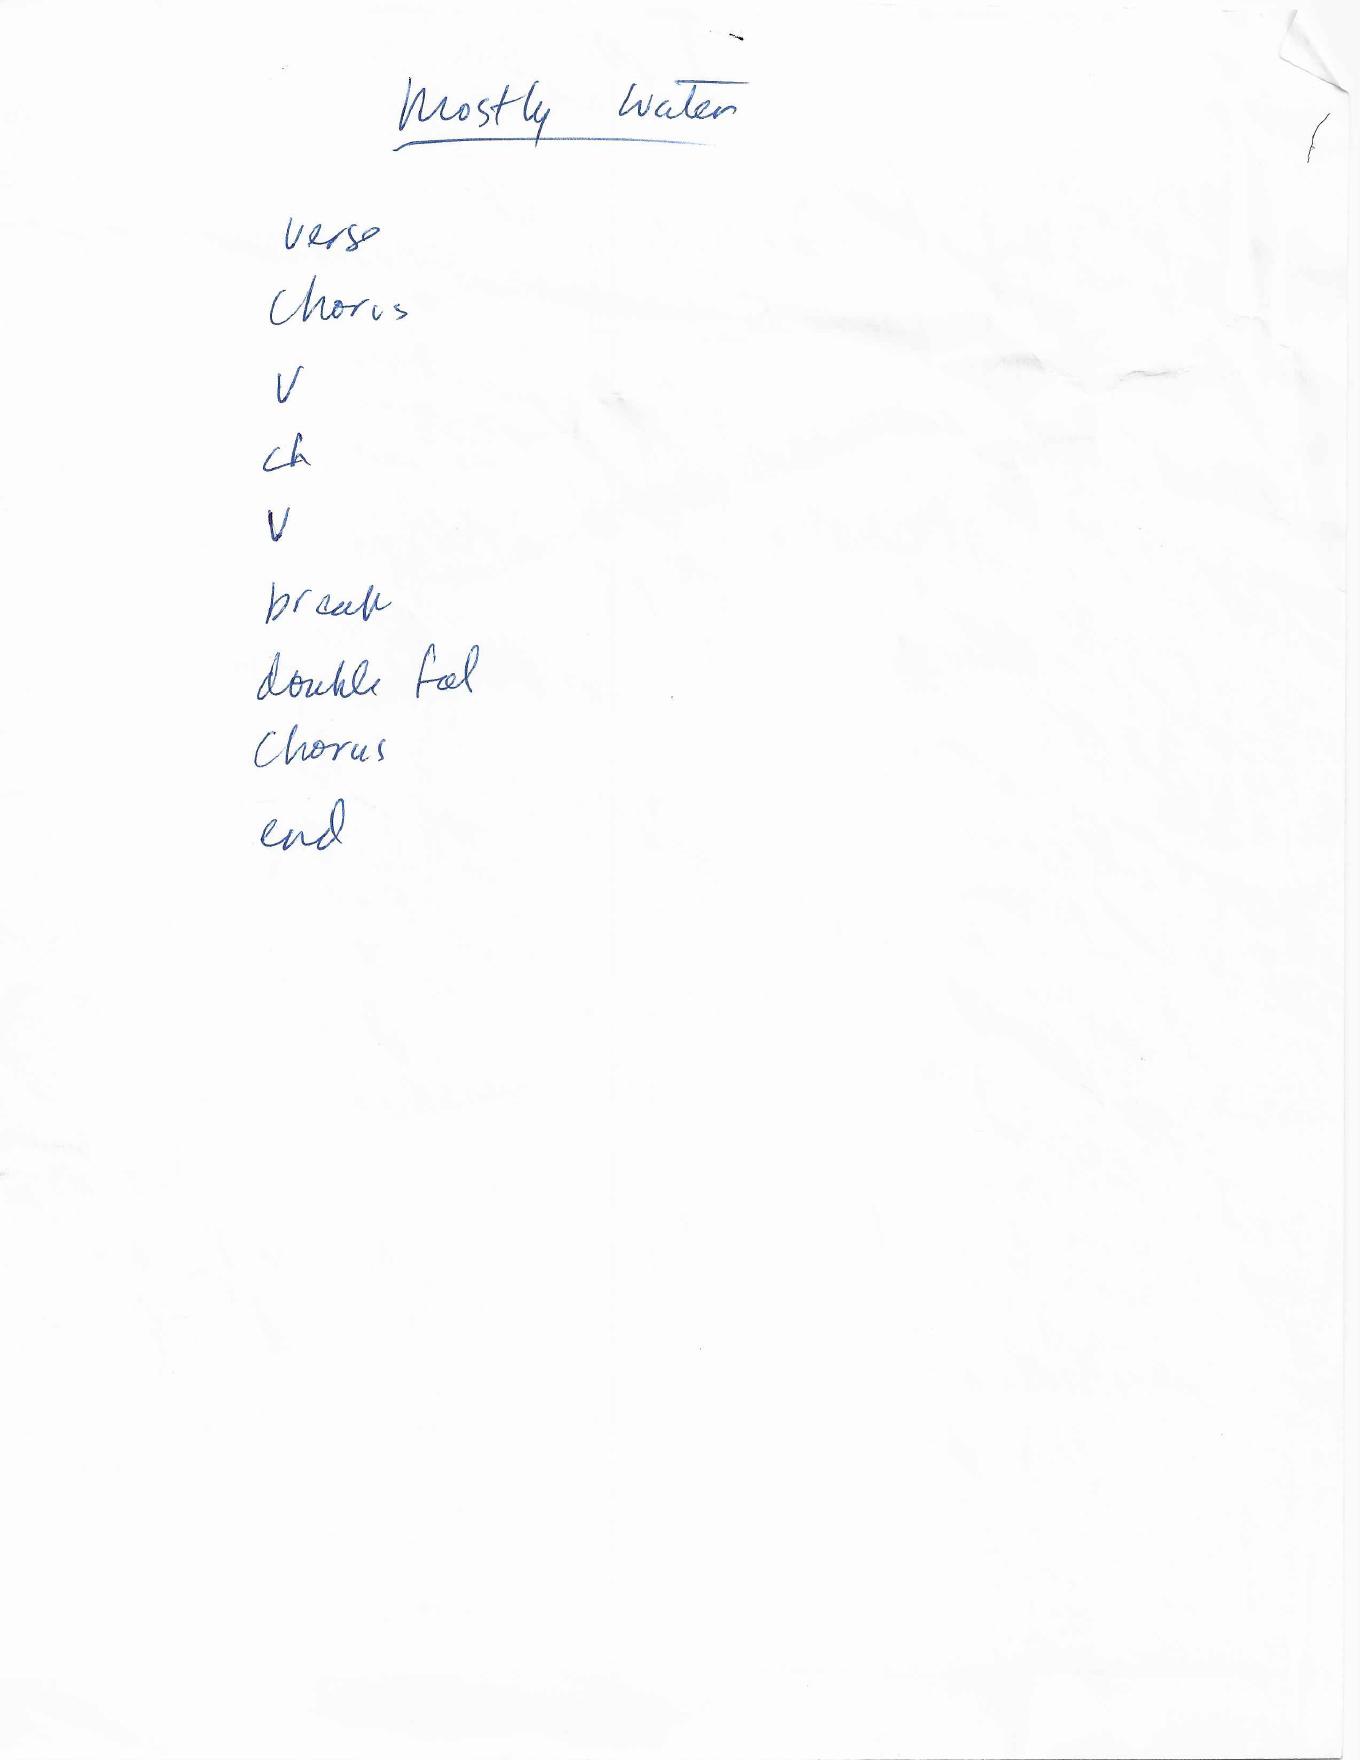 Mostly Water
verse
Chorus
V
ch
V
break
double feel
Chorus
end